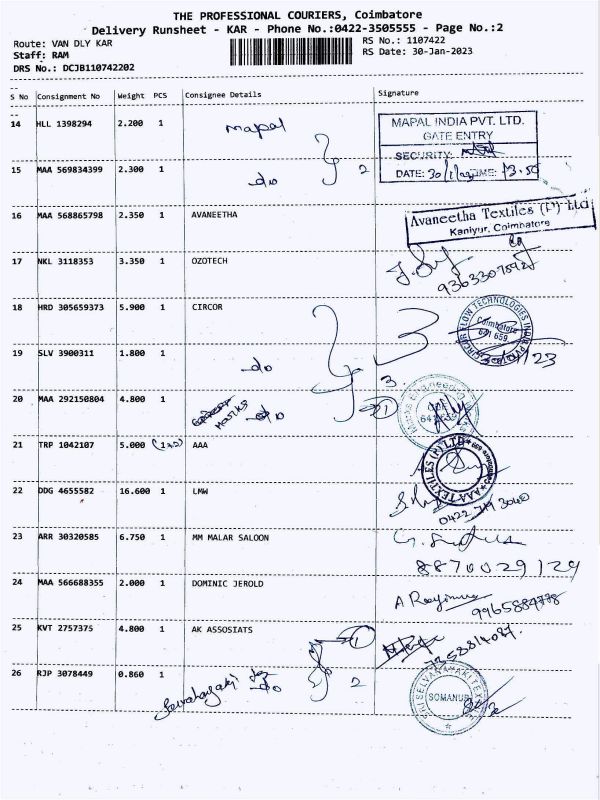 THE PROFESSIONAL COURIERS, Coimbatore
Delivery Runsheet - KAR - Phone No.:0422-3505555 - Page No.:2
Route: VAN DLY KAR RS No.: 1107422
Staff: RAM RS Date: 30-Jan-2023
DRS No.: DCJB110742202
S No Consignment No Weight PCS Consignee Details Signature
14 HLL 1398294 2.200 1 mapal
MAPAL INDIA PVT. LTD.
GATE ENTRY
SECURITY:
DATE: 30/1/ TIME: 13.50
15 MAA 569834399 2.300 1 -do 2
16 MAA 568865798 2.350 1 AVANEETHA
Avaneetha Textiles (P) Ltd
Kaniyur, Coimbatore
17 NKL 3118353 3.350 1 OZOTECH
18 HRD 305659373 5.900 1 CIRCOR 3
CIRCOR FLOW TECHNOLOGIES INDIA PVT
Coimbatore
641 659
19 SLV 3900311 1.800 1 -do
3.
20 MAA 292150804 4.800 1 -do 1
21 TRP 1042107 5.000 (1x2) AAA
AAA TEXTILES (P) LTD
22 DDG 4655582 16.600 1 LMW
23 ARR 30320585 6.750 1 MM MALAR SALOON
8870029129
24 MAA 566688355 2.000 1 DOMINIC JEROLD
9965884778
25 KVT 2757375 4.800 1 AK ASSOSIATS 1
7358814087.
26 RJP 3078449 0.860 1 -do 2
SOMANUR